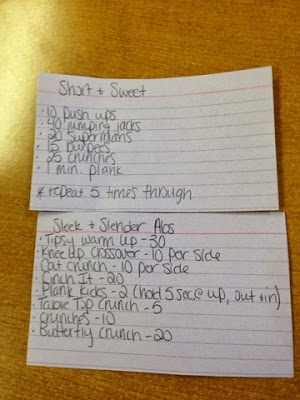 Short + Sweet
· 10 push ups
· 40 jumping jacks
· 20 Supermans
· 15 burpees
· 25 crunches
· 1 min. plank
* repeat 5 times through
Sleek + Slender Abs
· Tipsy warm up - 30
· Knee Up Crossover - 10 per side
· Oat crunch - 10 per side
· Cinch It - 20
· Plank Kicks - 2 (hold 5 sec @ up, out + in)
· Table Top Crunch - 5
· Crunches - 10
· Butterfly Crunch - 20